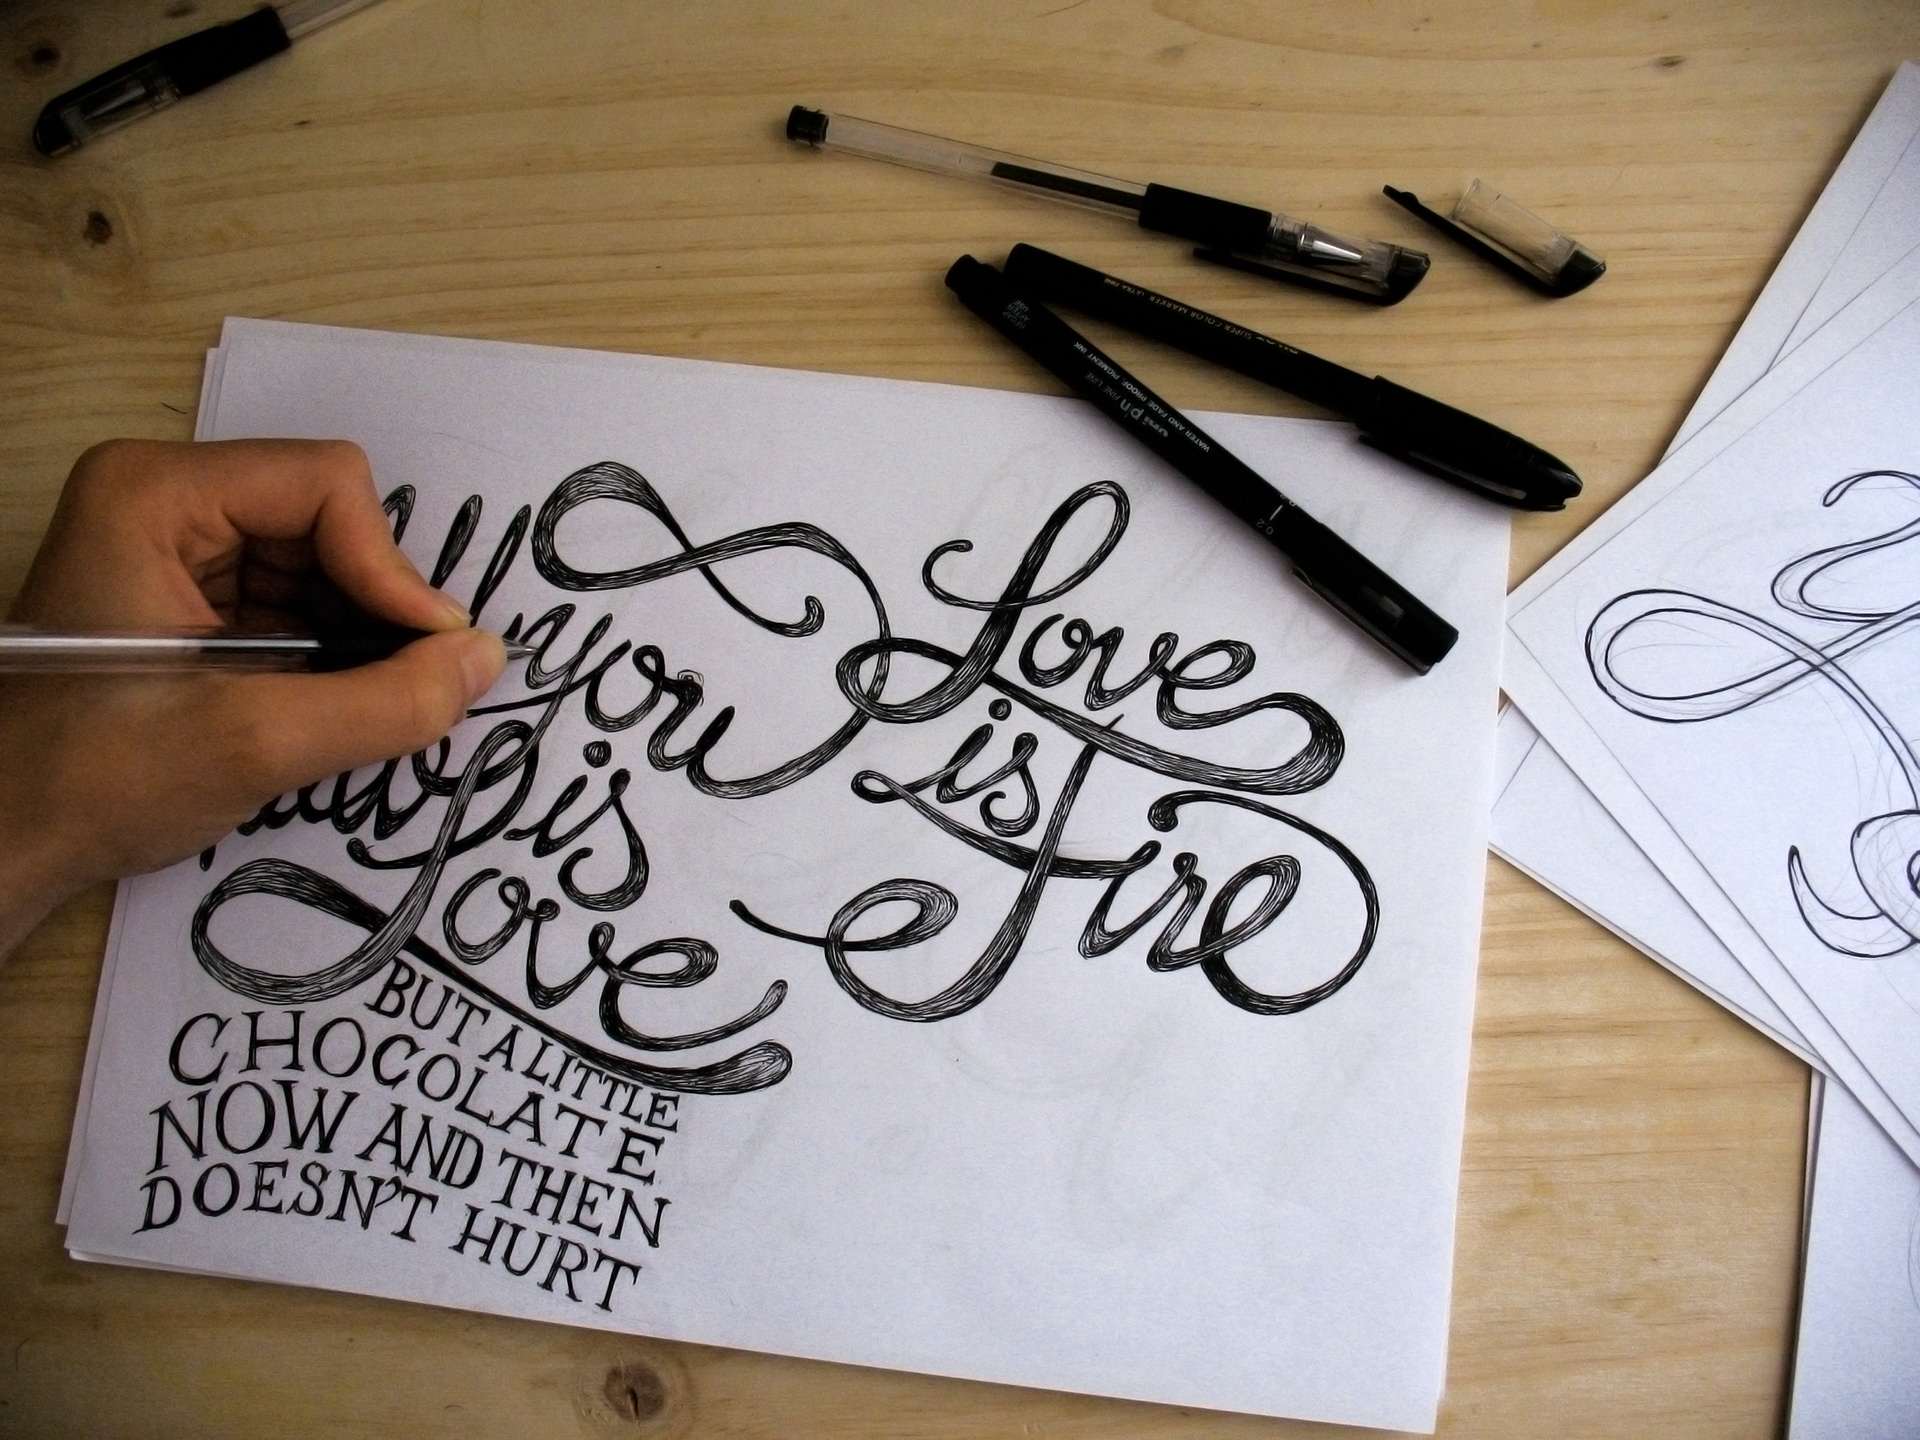 All you
need is
Love
BUT A LITTLE
CHOCOLATE
NOW AND THEN
DOESN'T HURT
Love
is
Fire
RECAP
AFTER
USE
uni pin FINE LINE
WATER AND FADE PROOF, PIGMENT INK
0.2
PILOT SUPER COLOR MARKER ULTRA FINE